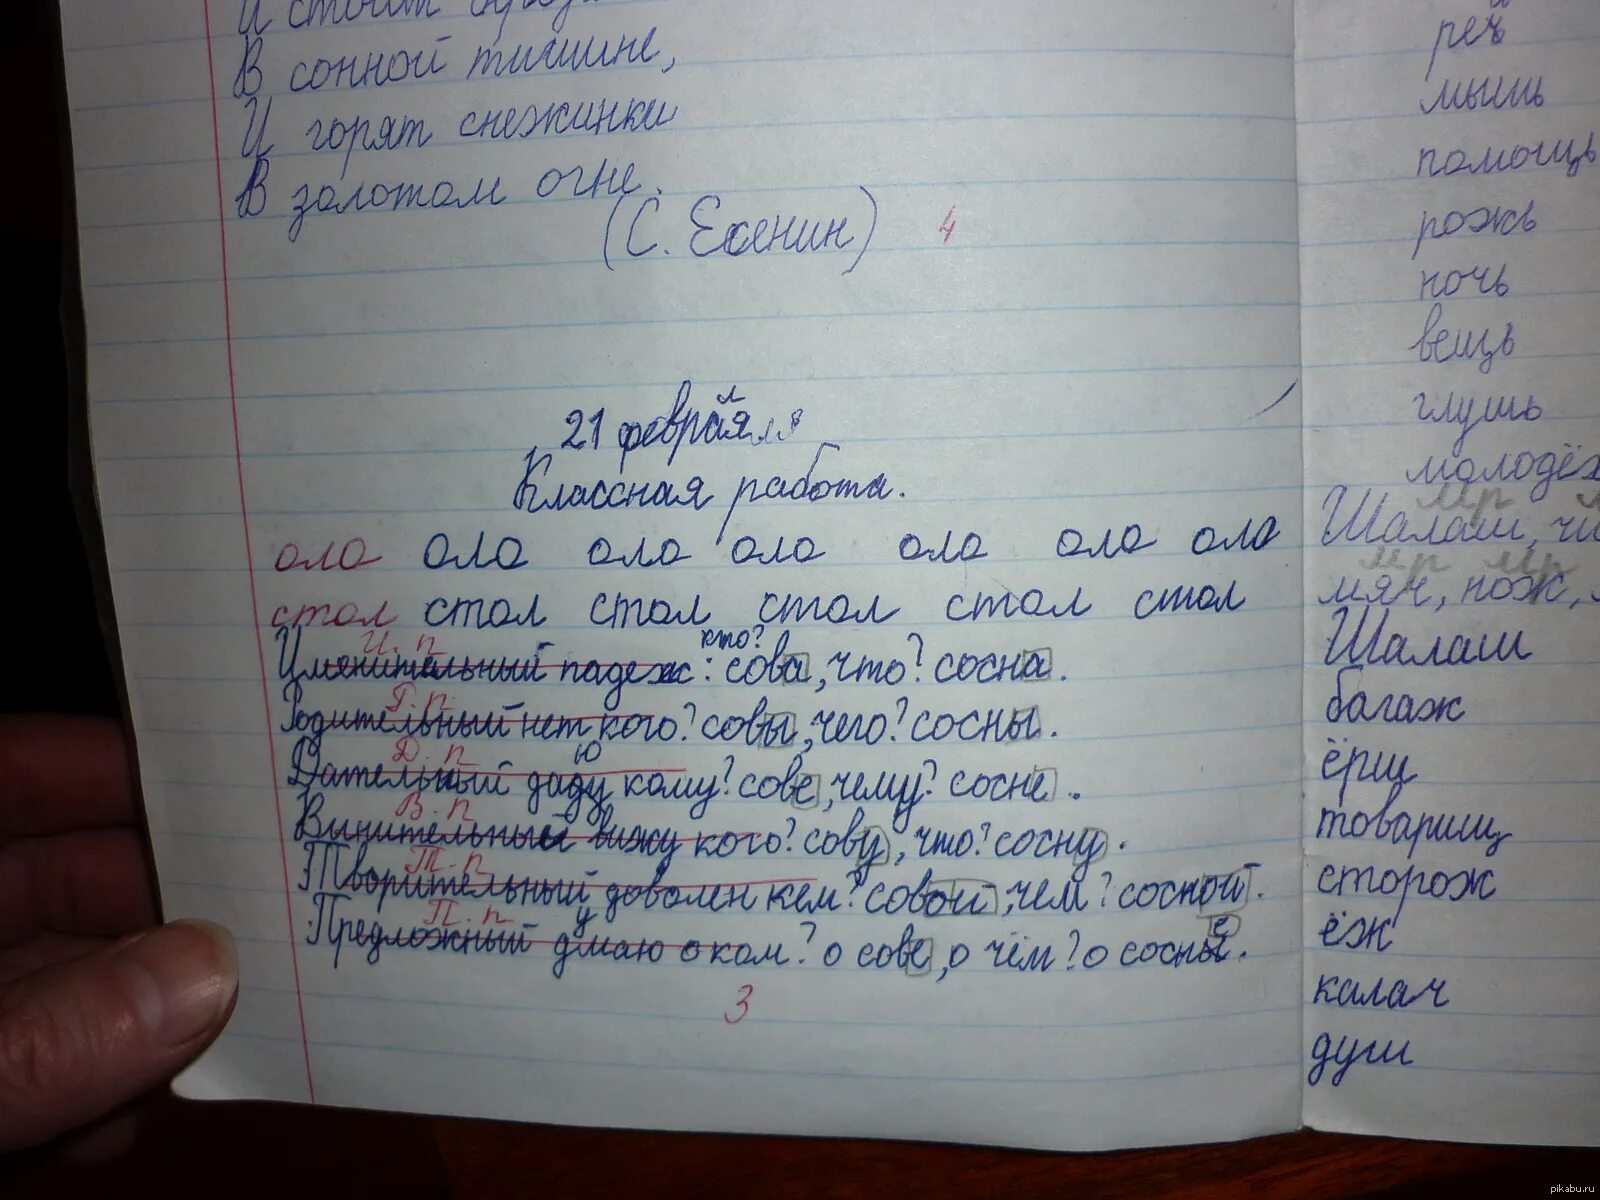 И стоит
В сонной тишине,
И горят снежинки
В золотом огне.
(С. Есенин) 4
21 февраля
Классная работа.
ола ола ола ола ола ола ола
стол стол стол стол стол стол
И. п. кто?
Именительный падеж: сова, что? сосна.
Р. п.
Родительный нет кого? совы, чего? сосны.
Д. п. ю
Дательный даду кому? сове, чему? сосне.
В. п
Винительный вижу кого? сову, что? сосну.
Т. п
Творительный доволен кем? совой, чем? сосной.
П. п у е
Предложный дмаю о ком? о сове, о чём? о сосны.
3
речь
мышь
помощь
рожь
ночь
вещь
глушь
молодёж
мр
Шалаш, чи
мр мр
мяч, нож,
Шалаш
багаж
ёрш
товарищ
сторож
ёж
калач
душ
pikabu.ru